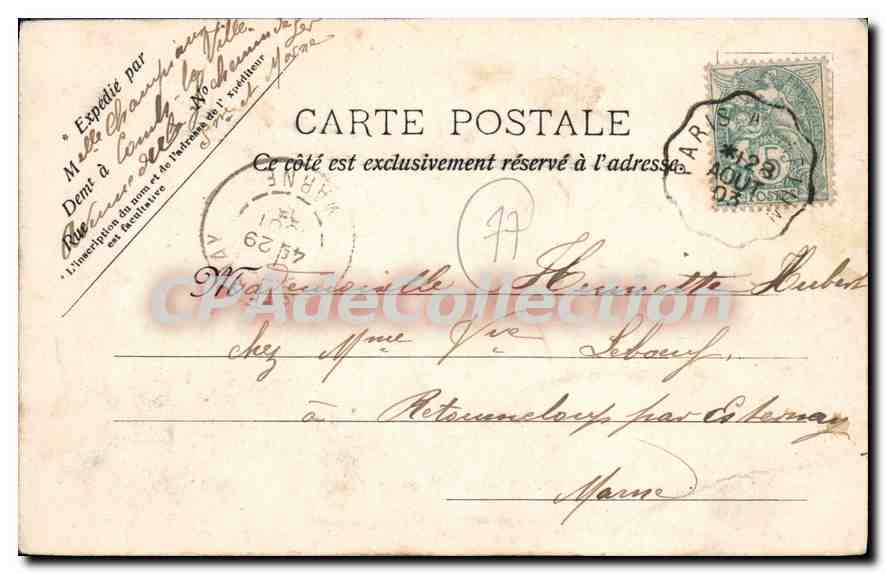 Expédié par
Mlle Champiaux
Demt à Combs-la-Ville
Rue Avenue de la N° chemin de fer
Sne et Marne
L'inscription du nom et de l'adresse de l'expéditeur
est facultative
CARTE POSTALE
Ce côté est exclusivement réservé à l'adresse.
PARIS A
*1 28
AOUT
03
POSTES
MARNE
29
77
Mademoiselle Henriette Hubert
chez Mme Vve Leboeuf,
à Retourneloup par Esternay
Marne
CPAdeCollection